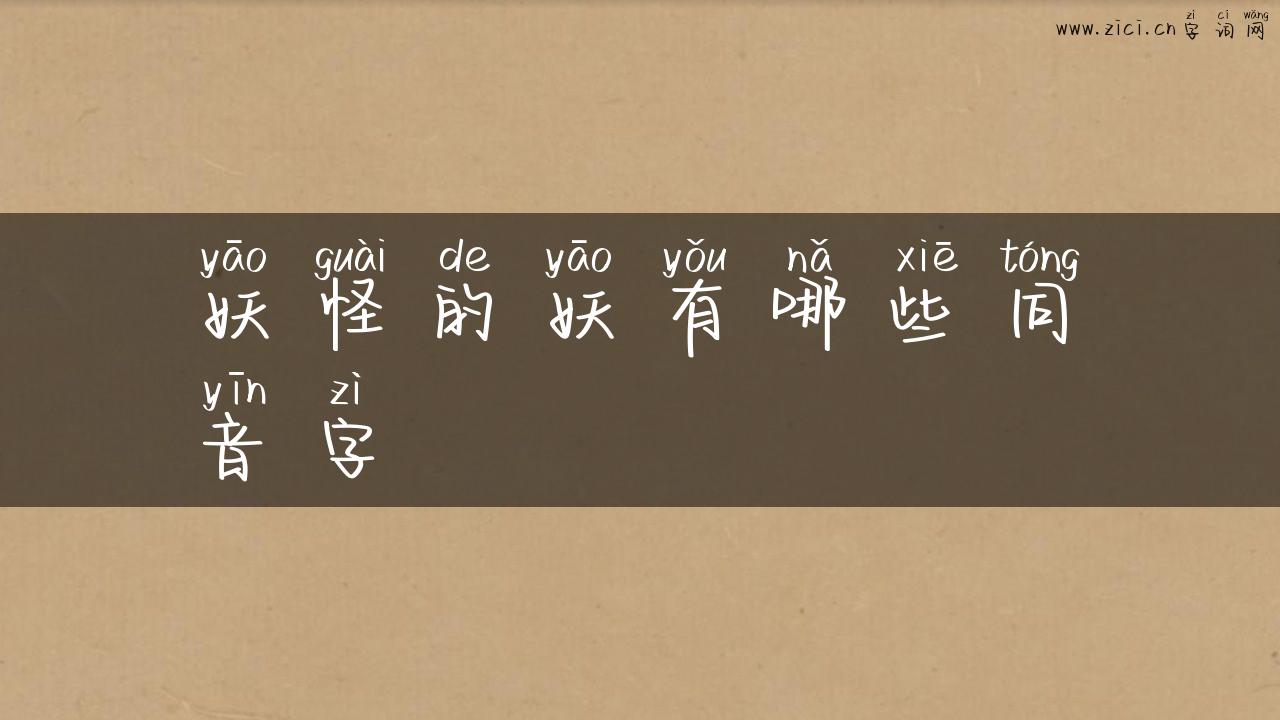 zì cí wǎng
www.zici.cn 字 词 网
yāo guài de yāo yǒu nǎ xiē tóng
妖 怪 的 妖 有 哪 些 同
yīn zì
音 字